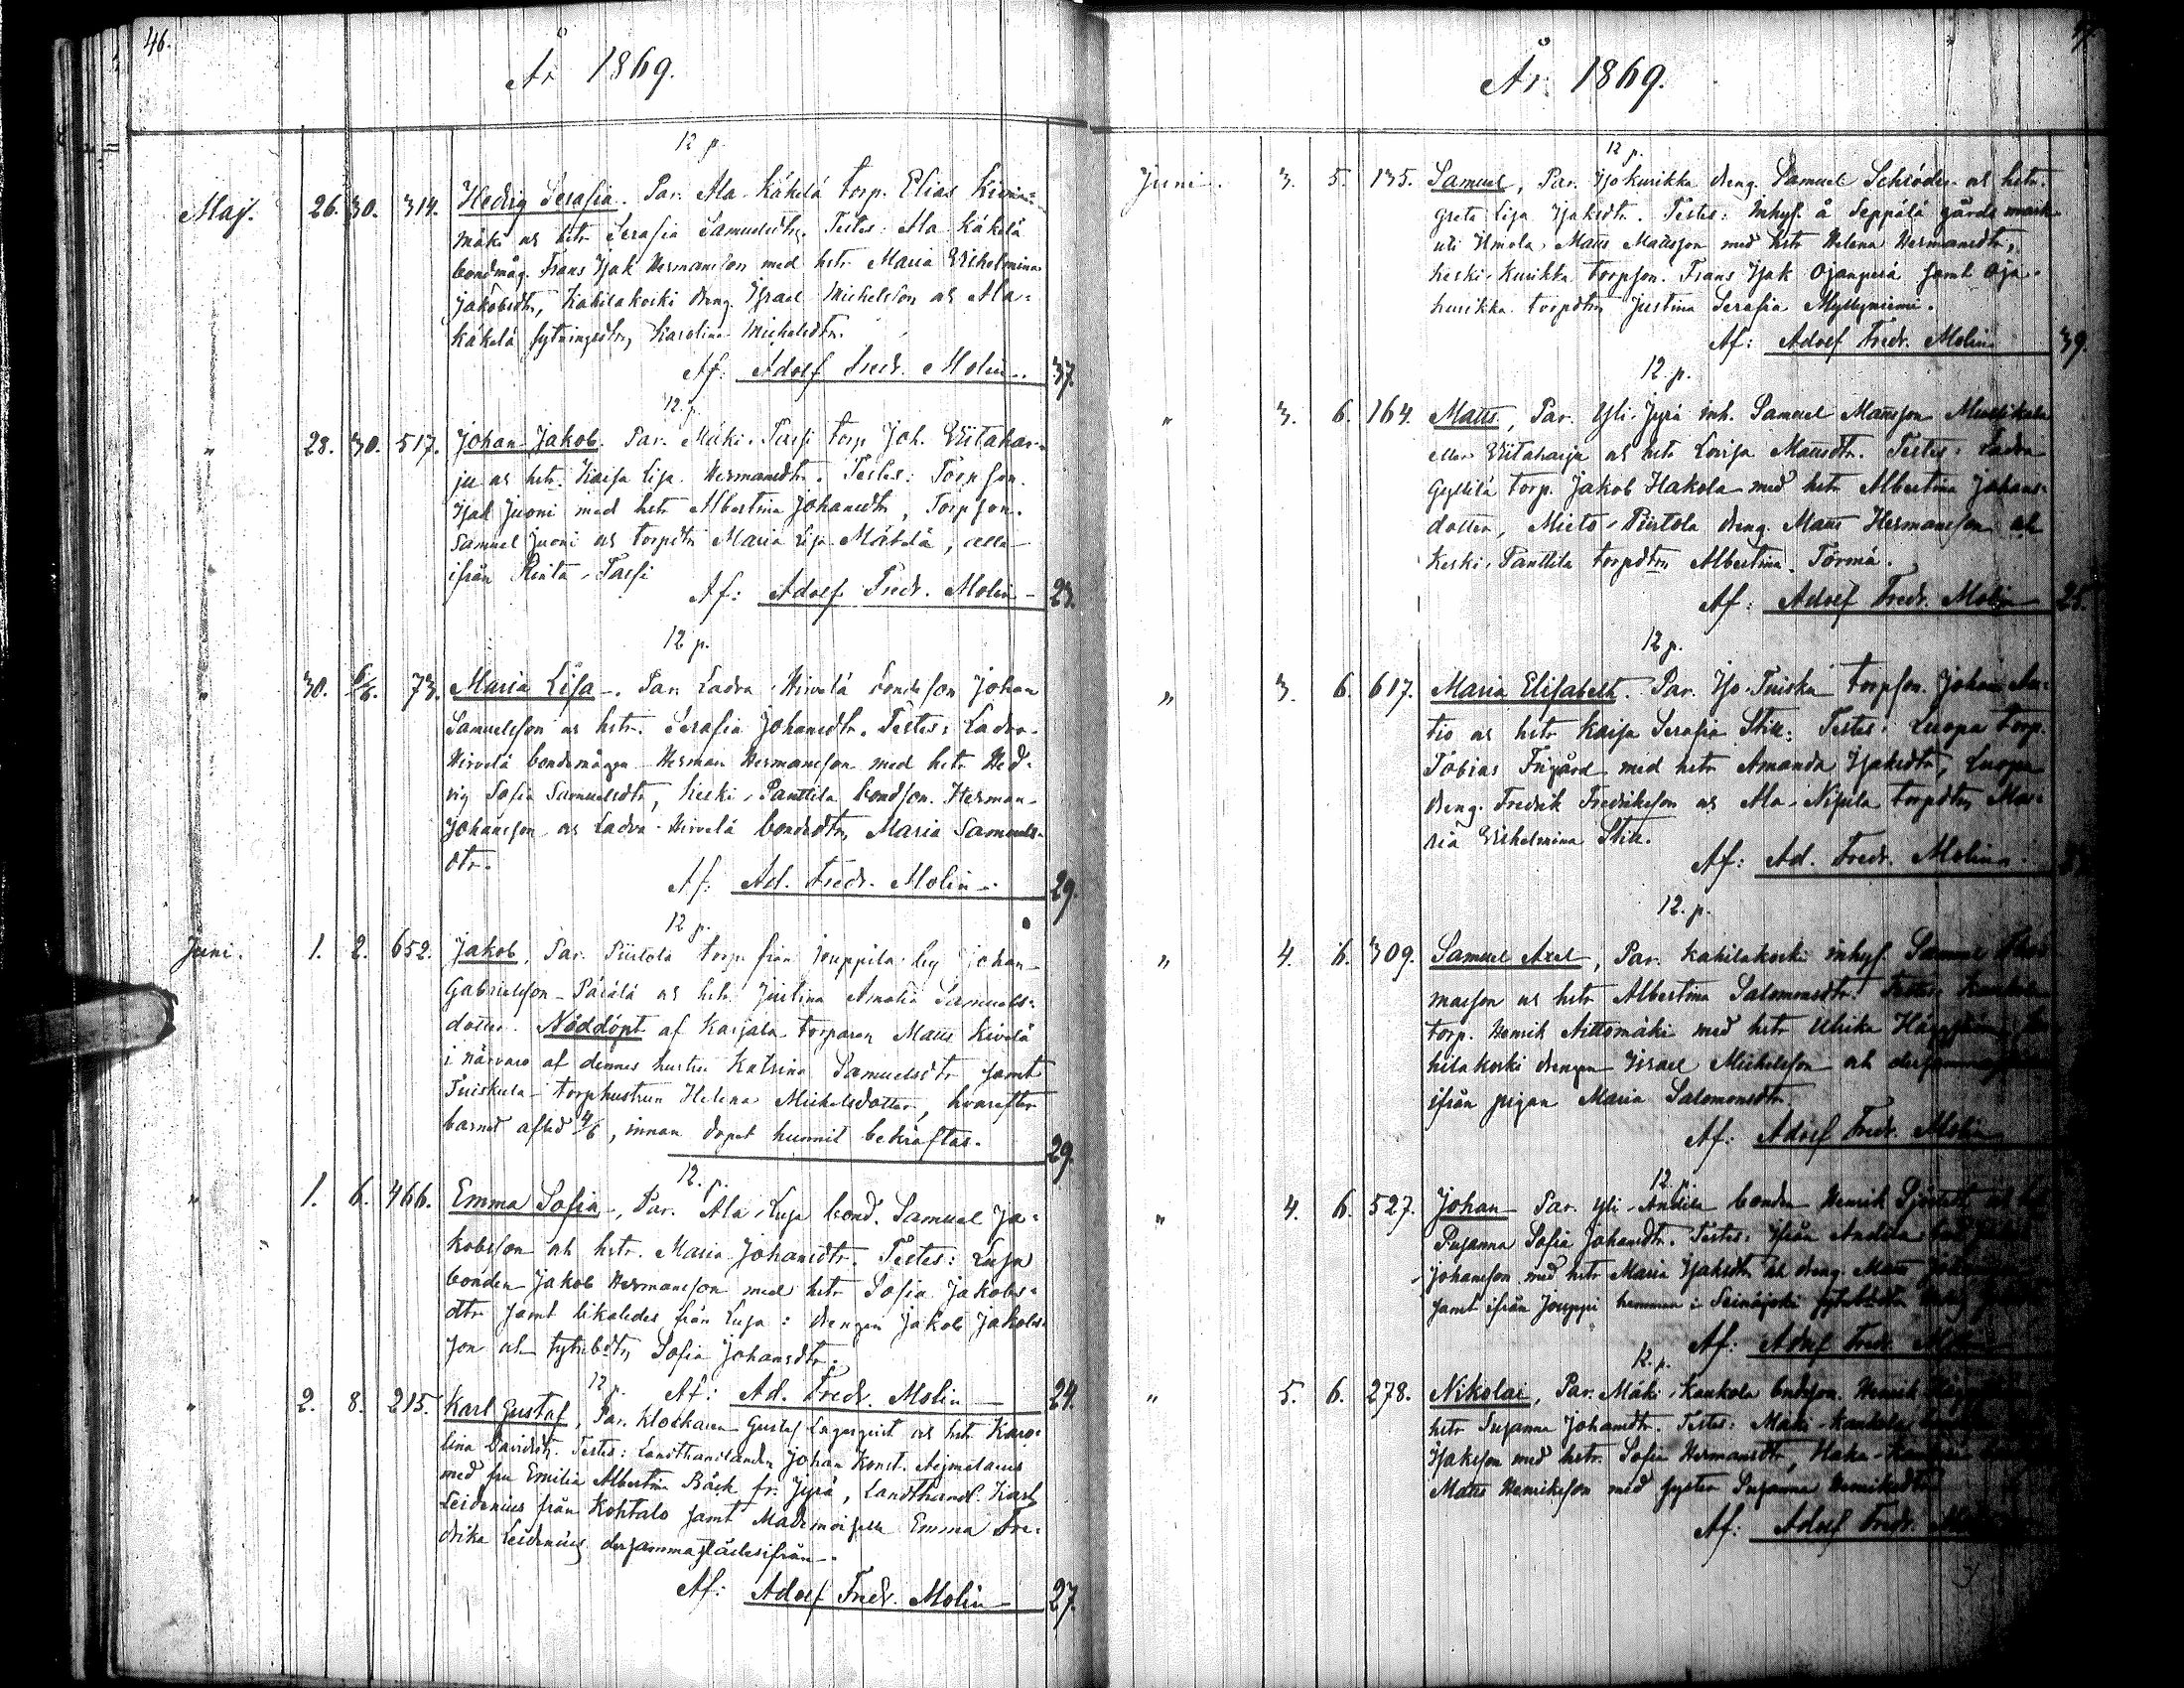 46.
År 1869.
12 p.
Maj. 26. 30. 314. Hedvig Serafia. Par. Ala-Käkelä torp. Elias Kivi-
mäki och hstr Serafia Samuelsdtr. Testes: Ala Käkelä
bondmåg. Frans Isak Hermansson med hstr Maria Wilhelmina
Jakobsdtr, Kahilakoski dreng. Israel Michelsson och Ala-
Käkelä sytningsdtr, Karolina Michelsdtr.
Af: Adolf Fredr. Molin. 37.
12. p.
" 28. 30. 517. Johan Jakob. Par. Mäki-Passi torp Joh. Viitahar-
ju och hstr. Kaisa Lisa Hermansdtr. Testes: Torpson.
Isak Juoni med hstr Albertina Johansdtr, Torpson.
Samuel Juoni och torpdtr Maria Lisa Mäkelä, alla
ifrån Rinta-Passi
Af: Adolf Fredr. Molin 23.
12 p.
" 30. 6/6. 73. Maria Lisa. Par. Ladva-Hirvelä bondeson Johan
Samuelsson och hstr. Serafia Johansdtr. Testes: Ladva-
Hirvelä bondemågen Herman Hermansson med hstr Hed-
vig Sofia Samuelsdtr, Keski-Panttila bondson. Herman
Johansson och Ladva-Hirvelä bondedtr, Maria Samuels-
dtr.
Af: Ad. Fredr. Molin 29.
12 p.
Juni. 1. 2. 652. Jakob, Par. Piirtola torp. från Jouppila by Johan
Gabrielsson-Päiälä och hstr. Justina Amalia Samuels-
dotter. Nöddöpt af Karjala torparen Matts Kivelä
i närvaro af dennes hustru Katrina Samuelsdtr samt
Tuiskula-torphustrun Helena Michelsdotter, hvarefter
barnet afled 4/6, innan dopet hunnit bekräftas.
29.
12. p.
" 1. 6. 466. Emma Sofia, Par. Ala-Luja bond. Samuel Ja-
kobsson och hstr. Maria Johansdtr. Testes: Luja
bonden Jakob Hermansson med hstr Sofia Jakobs-
dtr samt likaledes från Luja: drengen Jakob Jakobs-
son och sytnbdtr, Sofia Johansdtr.
Af: Ad. Fredr. Molin 24.
12 p.
" 2. 8. 215. Karl Gustaf, Par. Klockaren Gustaf Lagerqvist och hstr Karo-
lina Davidsdtr. Testes: Landthandlanden Johan Konst. Aejmelaeus
med fru Emilia Albertina Bäck fr. Jyrä, Landthandl. Karl
Leidenius från Kohtalo samt Mademoiselle Emma Fre-
drika Leidenius dersammastädesifrån.
Af: Adolf Fredr. Molin 27.
År 1869.
12 p.
Juni. 3. 5. 135. Samuel, Par. Yokurikka dreng. Samuel Schröder och hstr.
Greta Lisa Isaksdtr. Testes: Inhys. å Seppälä gårds mark
uti Ilmola Matts Mattsson med hstr Helena Hermansdtr,
Keski-Kurikka torpson. Frans Isak Ojanperä samt Oja-
kurikka torpdtr, Justina Serafia Myllyniemi.
Af: Adolf Fredr. Molin 39.
12. p.
" 3. 6. 164. Matts, Par. Yli-Jyrä inh. Samuel Mattsson
eller Viitaharju och hstr Lovisa Mattsdtr. Testes: Ladva
Gyllilä torp. Jakob Hakola med hstr Albertina Johans-
dotter, Mieto-Piirtola dreng. Matts Hermansson och
Keski-Panttila torpdtr, Albertina Törmä.
Af: Adolf Fredr. Molin 25.
12 p.
" 3. 6. 617. Maria Elisabeth. Par. Iso-Tuisku torpson. Johan An-
tio och hstr Kaisa Serafia Still. Testes: Luopa torp.
Tobias Frigård med hstr Amanda Isaksdtr, Luopa
dreng. Fredrik Fredriksson och Ala-Nisula torpdtr, Ma-
ria Wilhelmina Still.
Af: Ad. Fredr. Molin.
12. p.
" 4. 6. 309. Samuel Axel, Par. Kahilakoski inhys. Samuel
masson och hstr Albertina Salomonsdtr. Testes:
torp. Henrik Aittomäki med hstr Ulrika
hilakoski drengen Israel Michelsson och
ifrån pigan Maria Salomonsdtr
Af: Adolf Fredr. Molin
12. p.
" 4. 6. 527. Johan Par. Yli-Anttila bonden Henrik
Susanna Sofia Johansdtr. Testes: ifrån Anttila
Johansson med hstr Maria Isaksdtr och dreng. Matts
samt ifrån Jouppi hemman i Seinäjoki
Af: Adolf Fredr. Molin
12. p.
" 5. 6. 278. Nikolai, Par. Mäki-Kankola bondson. Henrik
hstr Susanna Johansdtr. Testes: Mäki-Kankola
Isaksson med hstr. Sofia Hermansdtr, Haka-
Matts Henriksson med syster Susanna Henriksdtr
Af: Adolf Fredr.